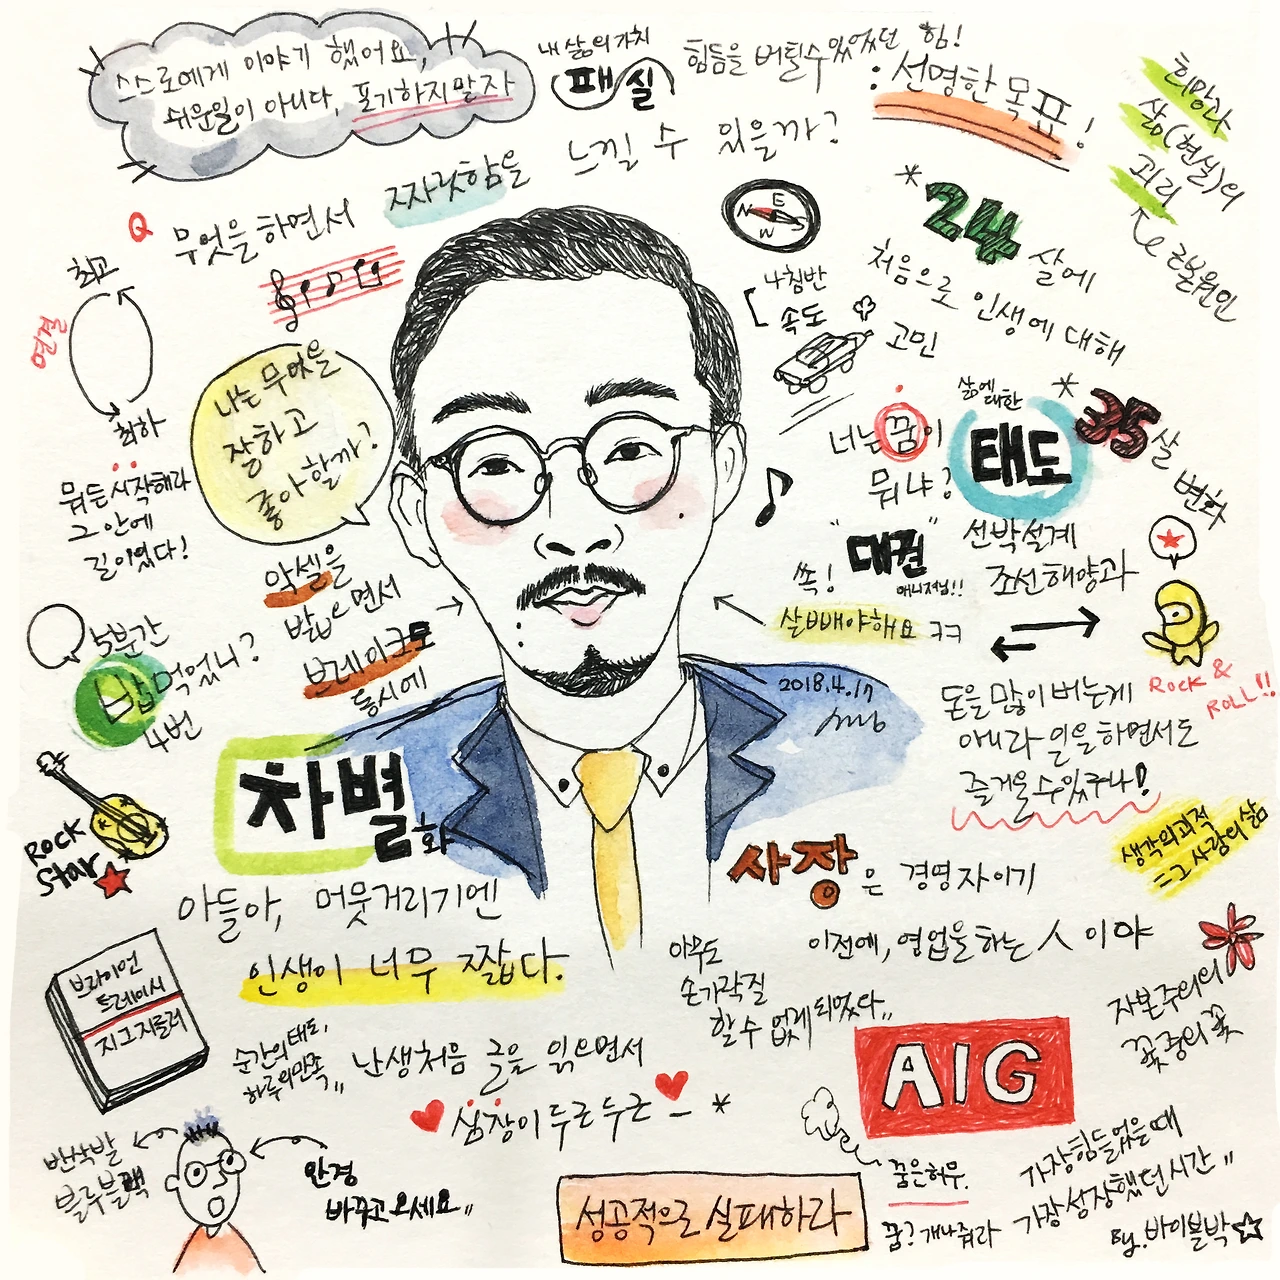 스스로에게 이야기 했어요,
쉬운일이 아니다, 포기하지말자
내 삶의 가치
패 실
힘듦을 버틸수있었던 힘!
: 선명한 목표!
희망과
삶(현실)의
괴리
근본원인
Q 무엇을 하면서 짜릿함을 느낄 수 있을까?
최고
연결
최하
뭐든시작해라
그 안에
길이있다!
나는 무엇을
잘하고
좋아할까?
N E
W S
나침반
속도
* 24 살에
처음으로 인생에 대해
고민
너는 꿈이
뭐냐?
삶에
대한
태도
* 35 살 변화
쏙!
"대권"
매니저님!!
선박설계
조선해양과
살빼야해요 ㅋㅋ
악셀을
밟으면서
브레이크도
동시에
5분간
밥먹었니?
4번
Rock
Star
차별화
2018.4.17
돈을 많이버는게
아니라 일을하면서도
즐거울수있구나!
Rock &
Roll!!
생각의괴적
=그 사람의 삶
아들아, 머뭇거리기엔
인생이 너무 짧다.
사장은 경영자이기
이전에, 영업을하는 人 이야
아무도
손가락질
할 수 없게되었다,,
자본주의의
꽃중의꽃
AIG
브라이언
트레이시
지그지글러
순간의태도,
하루의만족,,
난생처음 글을 읽으면서
심장이두근두근 *
반삭발
블루블랙
안경
바꾸고오세요,,
성공적으로 실패하라
꿈은허무.
꿈? 개나줘라
가장힘들었을때
가장성장했던시간,,
By. 바이블박